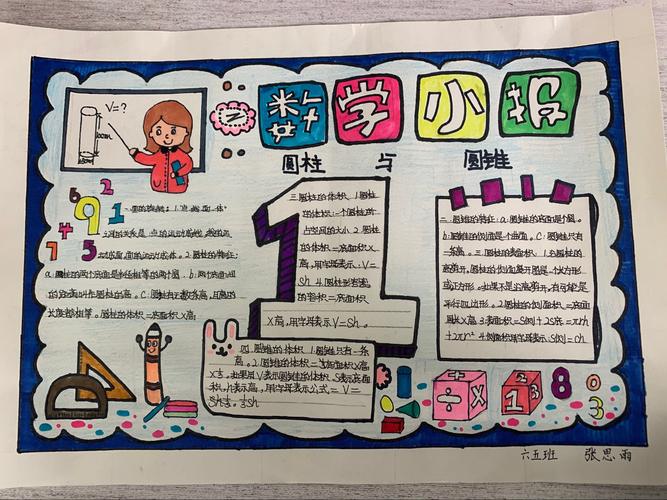 数学小报
圆柱 与 圆锥
V=?
100cm
6 2
9 1
7 4 5
一.圆的特征:1.点、线、面、体
之间的关系是:点的运动成线,线的运
动成面,面的运动成体。2.圆柱的特征:
a:圆柱的两个底面是半径相等的两个圆。b:两个底面间
的距离叫作圆柱的高。C:圆柱有无数条高,且高的
长度都相等。圆柱的体积=底面积×高
三.圆柱的体积 1.圆柱
的体积:一个圆柱所
占空间的大小。2.圆柱
的体积=底面积×
高。用字母表示:V=
Sh。4.圆柱形容器
的容积=底面积
×高,用字母表示V=Sh。
二.圆锥的特征:a.圆锥的底面是个圆。
b:圆锥的侧面是个曲面。C:圆锥只有
一条高。三.圆柱的表面积 1.沿圆柱的
高剪开,圆柱的侧面展开图是一个长方形
或正方形。如果不是沿高剪开,有可能是
平行四边形。2.圆柱的侧面积=底面
周长×高 3.表面积=S侧+2S底=πdh
+2πr² 4.侧面积用字母表示:S侧=Ch
四.圆锥的体积 1.圆锥只有一条
高。2.圆锥的体积=底面积×高
×⅓。如果用V表示圆锥的体积,S表示底面
积,h表示高,用字母表示公式=V=
Sh⅓。⅓Sh
÷ ×
1 2 3
8 0 3
六五班 张思雨